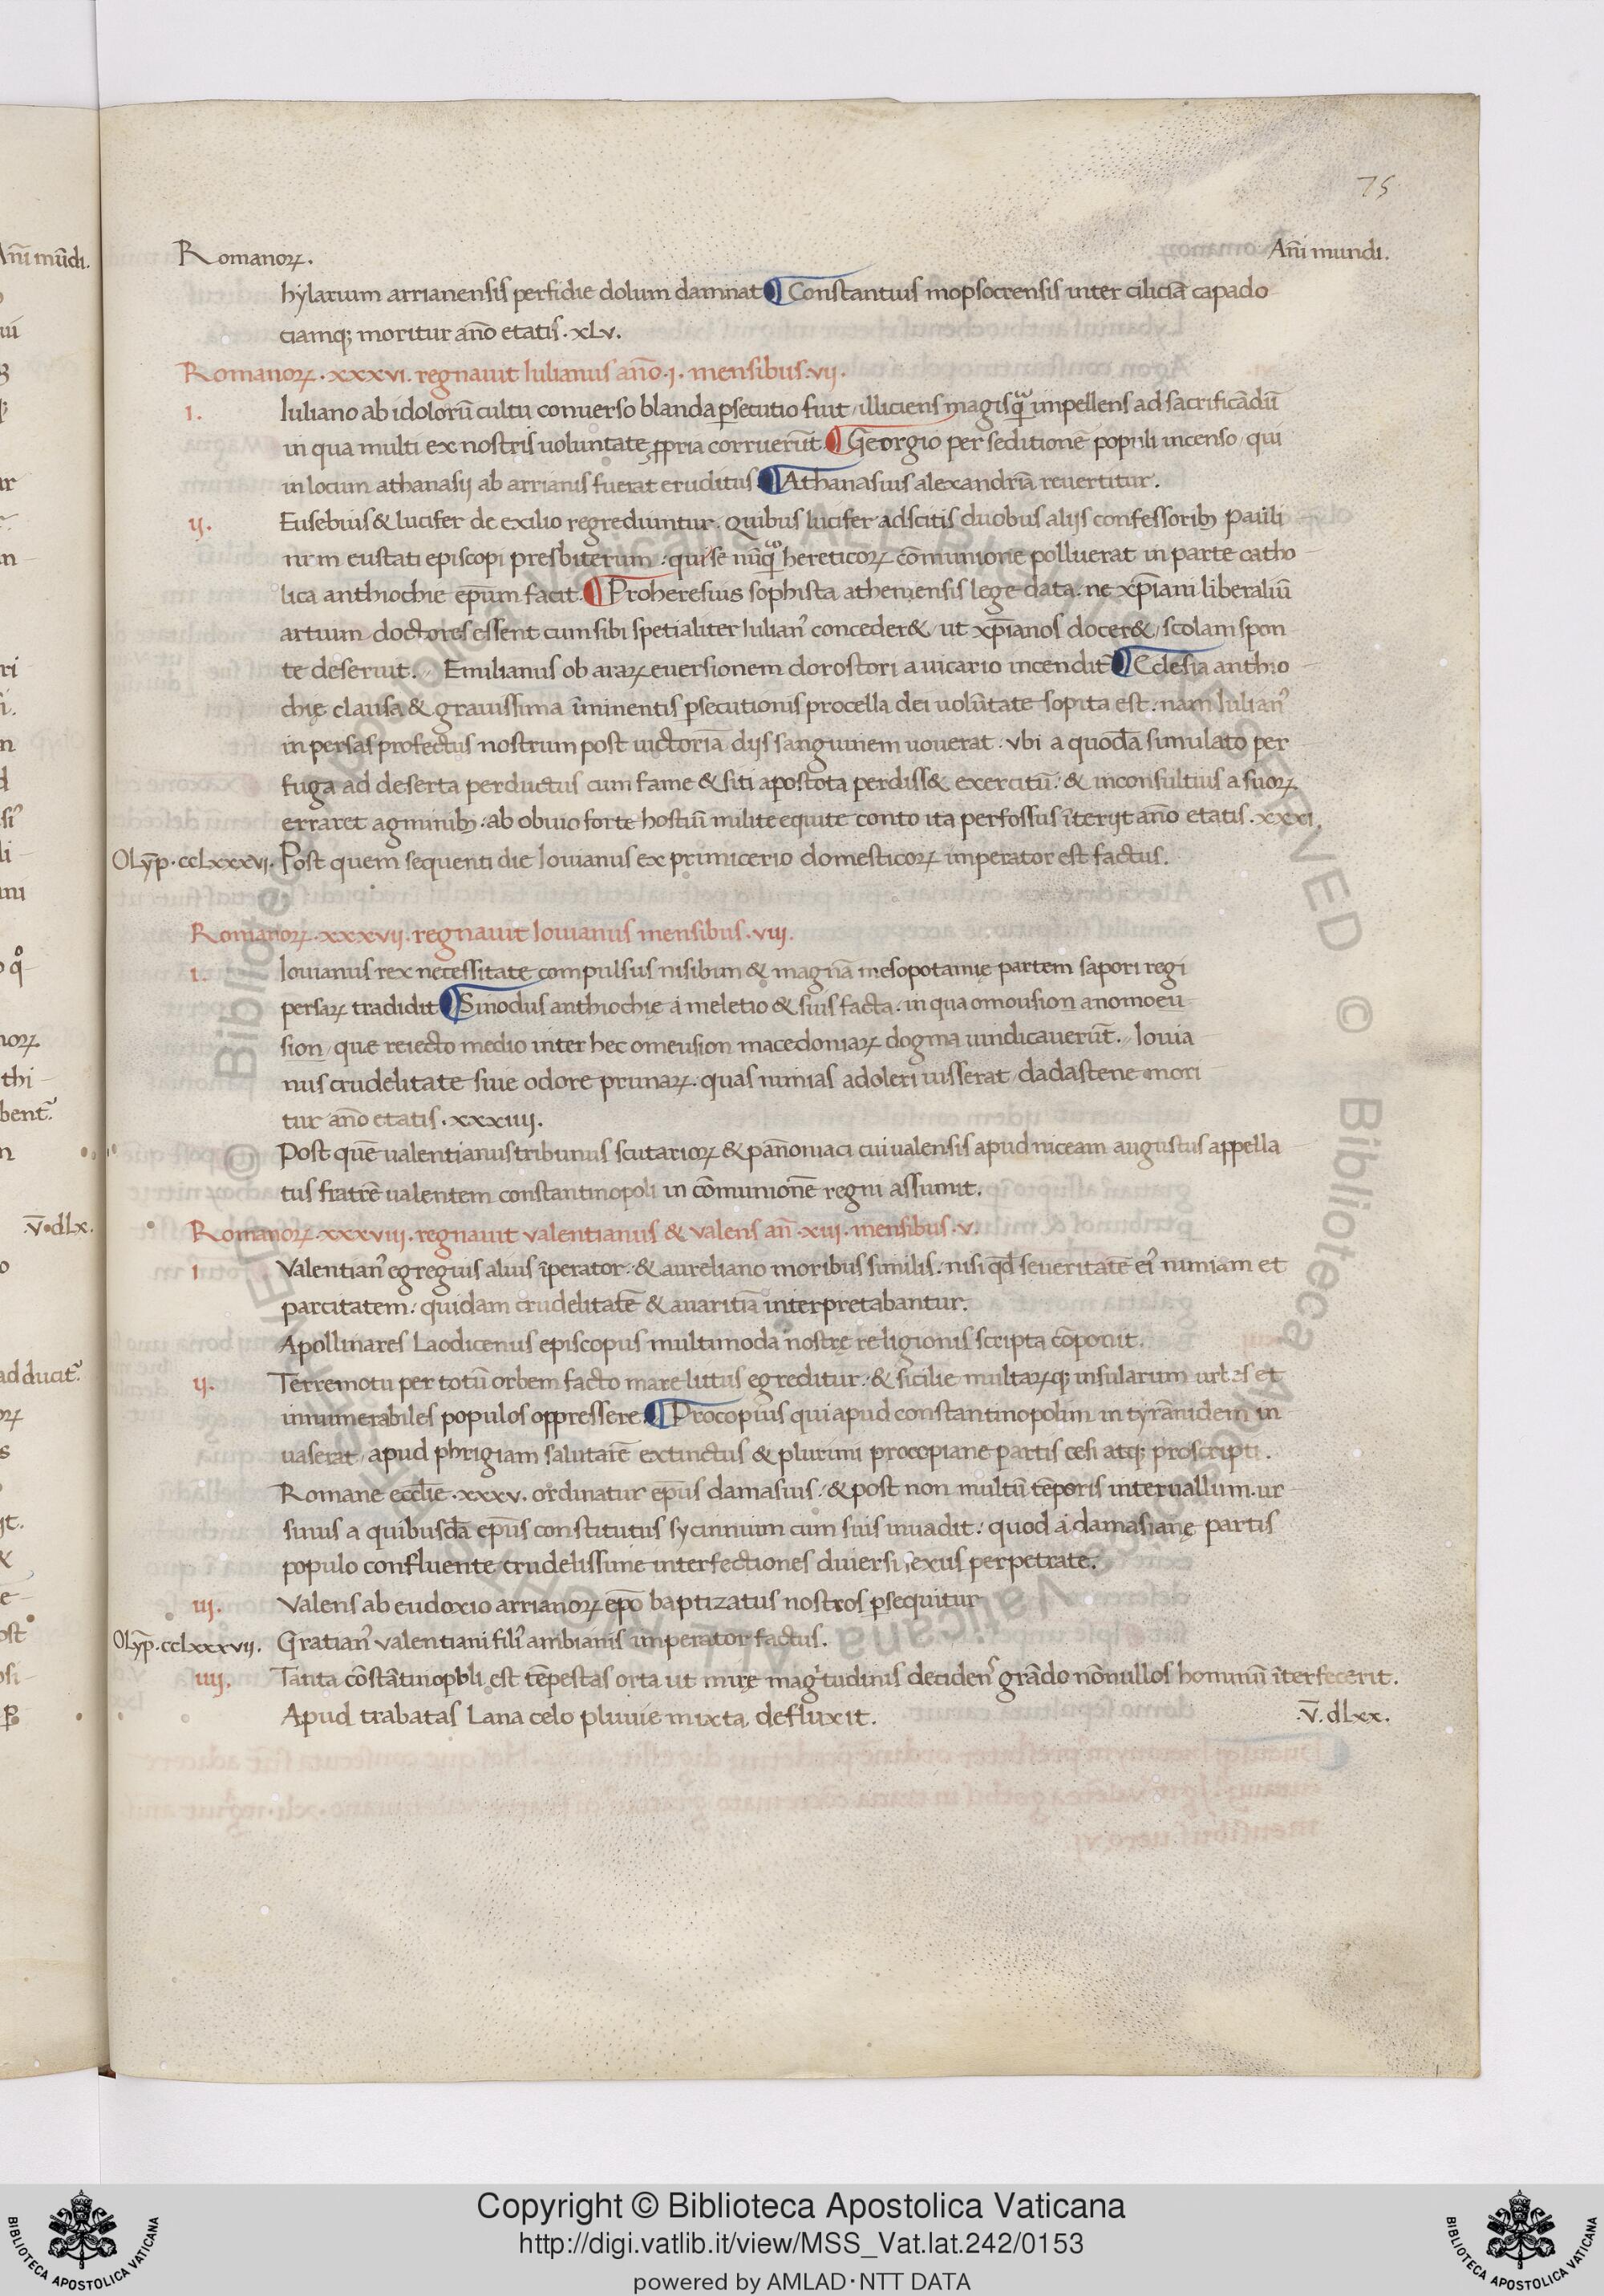 75
Romanoꝝ. Añi mundi.
hylarium arrianensis perfidie dolum damnat ¶ Constantius mopsocrensis inter ciliciā capado
ciamq; moritur año etatis. xLv.
Romanoꝝ. xxxvi. regnauit Iulianus año. j. mensibus. vij.
i. Iuliano ab idolorū cultu conuerso blanda ꝑsecutio fuit / illiciens magisqᷓ impellens ad sacrificādū
in qua multi ex nostris uoluntate ꝓpria corruerūt. ¶ Georgio per seditionē populi incenso / qui
in locum athanasij ab arrianis fuerat eruditus. ¶ Athanasius alexandriā reuertitur.
ij. Eusebius & lucifer de exilio regrediuntur. quibus lucifer adscitis duobus alijs confessorib; Pauli
num eustati episcopi presbiterum: qui se nūqᷓ hereticoꝝ cōmunione polluerat in parte catho
lica anthiochie ep̄um facit. ¶ Proheresius sophista atheniensis lege data. ne xp̄iani liberaliū
artium doctores essent cum sibi spetialiter Iulianꝰ conceder& / ut xp̄ianos docer& / scolam spon
te deseruit. Emilianus ob araꝝ euersionem dorostori a uicario incendit̄ ¶ Eclesia anthio
chię clausa & grauissima īminentis ꝑsecutionis procella dei uolūtate sopita est. nam Iulianꝰ
in persas profectus nostrum post uictoriā dijs sanguinem uouerat. vbi a quodā simulato per
fuga ad deserta perductus cum fame & siti apostota perdiss& exercitū: & inconsultius a suoꝝ
erraret agminib;: ab obuio forte hostiū milite equite conto ita perfossus īterijt año etatis. xxxi.
OLyp̄. ccLxxxvi. Post quem sequenti die Iouianus ex primicerio domesticoꝝ imperator est factus.
Romanoꝝ. xxxvij. regnauit Iouianus mensibus. viij.
i. Iouianus rex necessitate compulsus nisibin & magnā mesopotamię partem sapori regi
persaꝝ tradidit ¶ Sinodus anthiochię a meletio & suis facta. in qua omousion anomoeu
sion / que reiecto medio inter hec omeusion macedoniaꝝ dogma uindicauerūt. Iouia
nus crudelitate siue odore prunaꝝ. quas nimias adoleri iusserat / dadastene mori
tur año etatis. xxxiiij.
Post quē ualentianus tribunus scutarioꝝ & pañoniaci cuiualensis apud niceam augustus appella
tus fratrē ualentem constantinopoli in cōmunionē regni assumit.
Romanoꝝ. xxxviij. regnauit valentianus & valens añ. xiij. mensibus. v.
i Valentianꝰ egregius alius īperator: & aureliano moribus similis: nisi qd̄ seueritatē eiꝰ nimiam et
parcitatem: quidam crudelitatē & auaritiā interpretabantur.
Apollinares Laodicenus episcopus multimoda nostrę religionis scripta cōponit.
ij. Terremotu per totū orbem facto mare littus egreditur: & sicilie multaꝝq; insularum urbes et
innumerabiles populos oppressere. ¶ Procopius qui apud constantinopolim in tyrānidem in
uaserat / apud phrigiam salutarē extinctus & plurimi procopiane partis cesi atq; proscripti.
Romane eccl̄ie. xxxv. ordinatur ep̄us damasius: & post non multū tēporis interuallum. ur
sinus a quibusdā ep̄us constitutus sycinnium cum suis inuadit: quod a damasianę partis
populo confluente crudelissime interfectiones diuersi sexus perpetrate.
iij. Valens ab eudoxio arrianoꝝ ep̄o baptizatus nostros ꝑsequitur
OLyp̄. ccLxxxvij. Gratianꝰ valentiani filiꝰ ambianis imperator factus.
iiij. Tanta cōstātinopoli est tēpestas orta ut mirę magitudinis decidens grādo nōnullos hominū īterfecerit.
Apud trabatas Lana celo pluuie mixta defluxit. .v̄. dLxx.
Copyright © Biblioteca Apostolica Vaticana
http://digi.vatlib.it/view/MSS_Vat.lat.242/0153
powered by AMLAD·NTT DATA
BIBLIOTECA APOSTOLICA VATICANA
BIBLIOTECA APOSTOLICA VATICANA